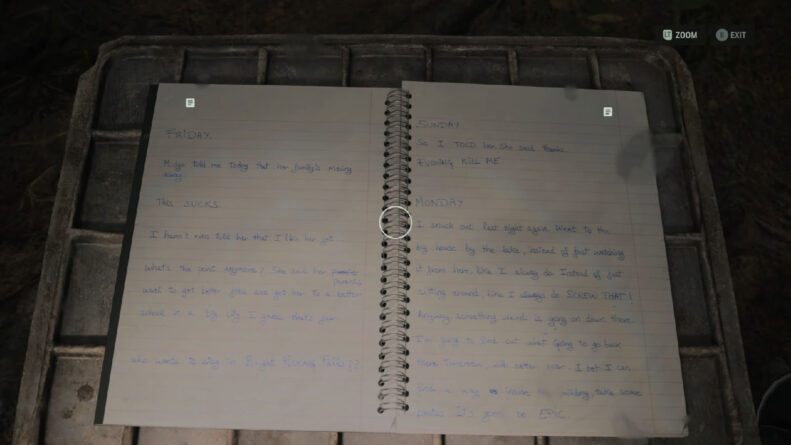 LT ZOOM
EXIT
FRIDAY
Midge told me today that her family's moving
away.
THIS SUCKS.
I haven't even told her that I like her yet.
What's the point anymore? She said her
parents
want to get better jobs and get her to a better
school in a big city. I guess that's fair.
who wants to stay in Bright Falls??
SUNDAY
So I TOLD her. She said thanks.
KILL ME
MONDAY
I snuck out last night again. Went to the
big house by the lake, instead of just watching
it from here, like I always do. Instead of just
sitting around, like I always do. SCREW THAT!
Anyway, something weird is going on down there.
I'm going to find out what. Going to go back
there tomorrow, and even. I bet I can
find a way inside building, take some
photos. It's gonna be EPIC